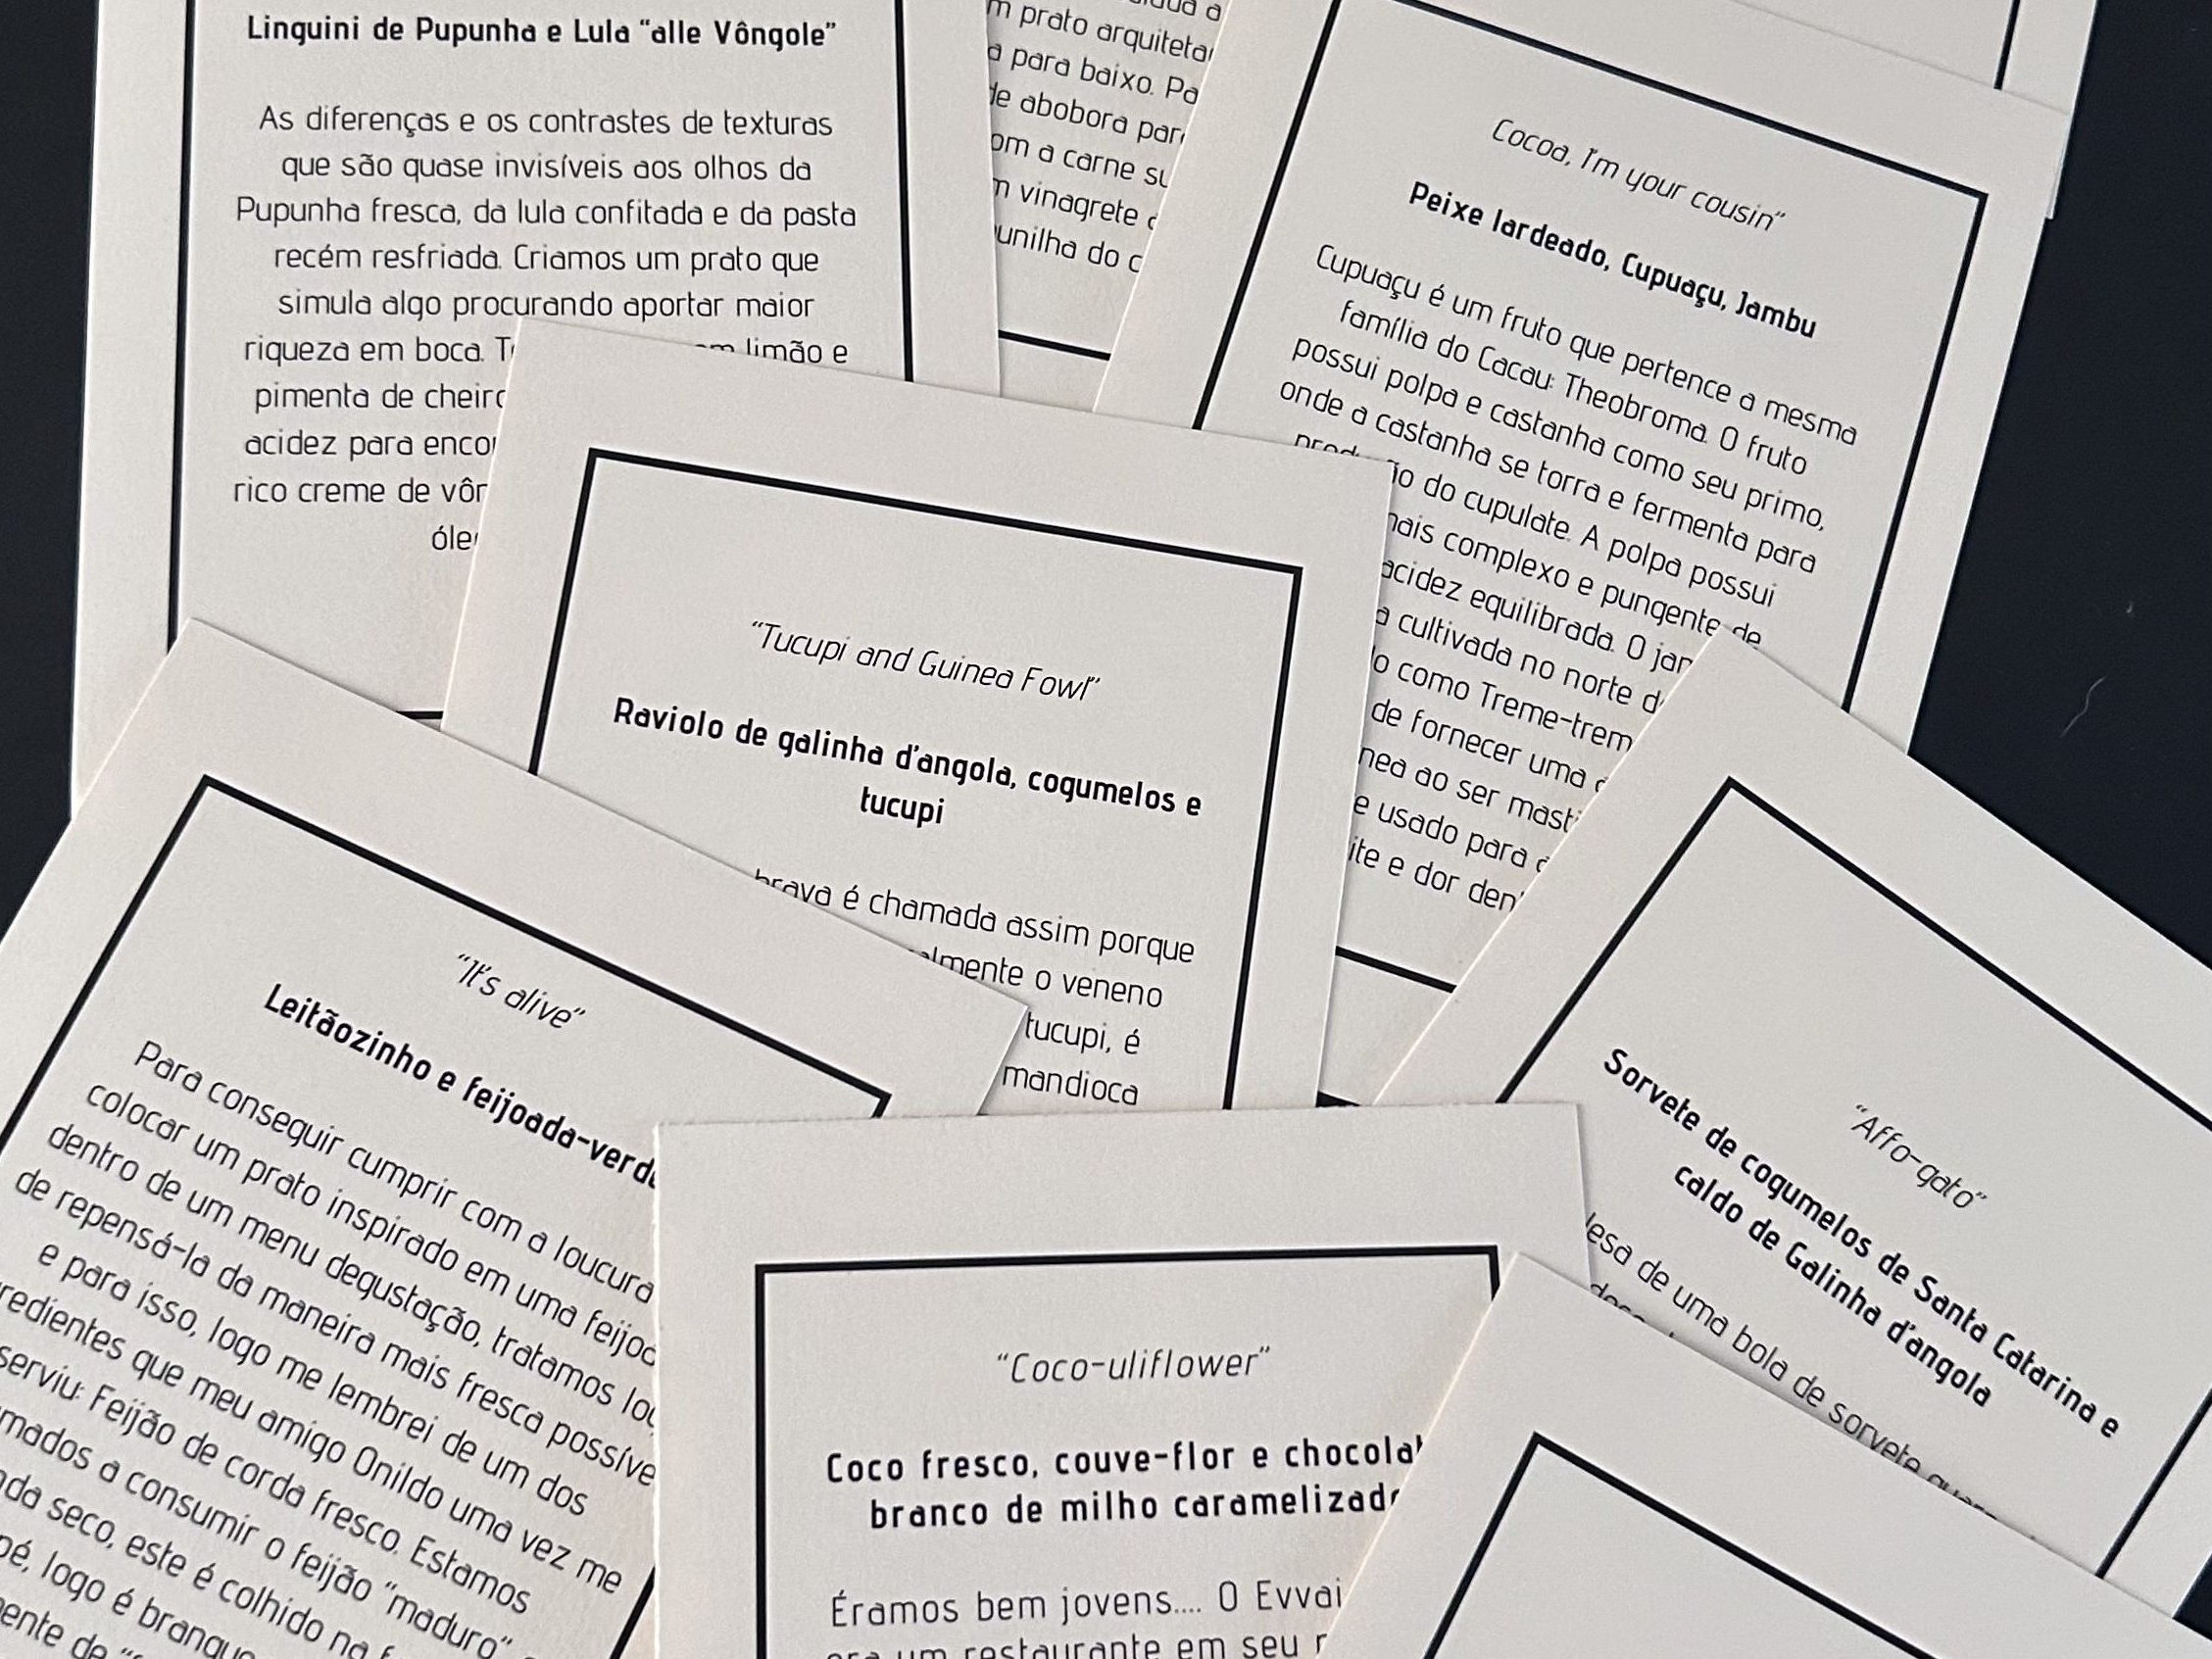 Linguini de Pupunha e Lula “alle Vôngole”
As diferenças e os contrastes de texturas
que são quase invisíveis aos olhos da
Pupunha fresca, da lula confitada e da pasta
recém resfriada. Criamos um prato que
simula algo procurando aportar maior
riqueza em boca. limão e
pimenta de
acidez para
rico creme de
prato
para baixo.
abobora
a carne
vinagrete
do
Cocoa, I'm your cousin”
Peixe lardeado, Cupuaçu, Jambu
Cupuaçu é um fruto que pertence a mesma
família do Cacau: Theobroma. O fruto
possui polpa e castanha como seu primo,
onde a castanha se torra e fermenta para
do cupulate. A polpa possui
complexo e pungente de
acidez equilibrada. O
cultivada no norte
como Treme-trem
de fornecer uma
ao ser
usado para
e dor
“Tucupi and Guinea Fowl”
Raviolo de galinha d'angola, cogumelos e
tucupi
brava é chamada assim porque
o veneno
tucupi, é
mandioca
“It's alive”
Leitãozinho e
Para conseguir cumprir com a loucura
colocar um prato inspirado em uma
dentro de um menu degustação, tratamos
de repensá-la da maneira mais fresca
e para isso, logo me lembrei de um dos
que meu amigo Onildo uma vez me
serviu: Feijão de corda fresco. Estamos
a consumir o feijão “maduro”
seco, este é colhido na
logo é
de
“Affo-gato”
Sorvete de cogumelos de Santa Catarina e
caldo de Galinha d'angola
de uma bola de sorvete
“Coco-uliflower”
Coco fresco, couve-flor e
branco de milho
Éramos bem jovens.... O Evvai
era um restaurante em seu